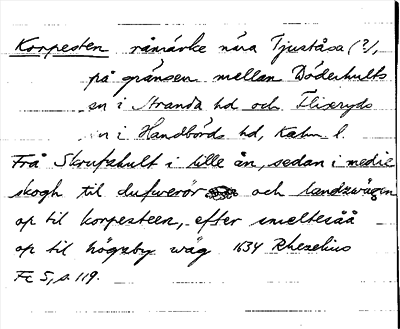 Korpesten råmärke nära Tjuståsa (?),
på gränsen mellan Döderhults
sn i Stranda hd och Fliseryds
sn i Handbörds hd, Kalm l.
Frå Skrufshult i lille ån, sedan i medie
skogh til dufwerör och landzwägin
op til korpesteen, efter smelteåå
op til högsby wäg 1634 Rhezelius
Fc 5, s. 119.